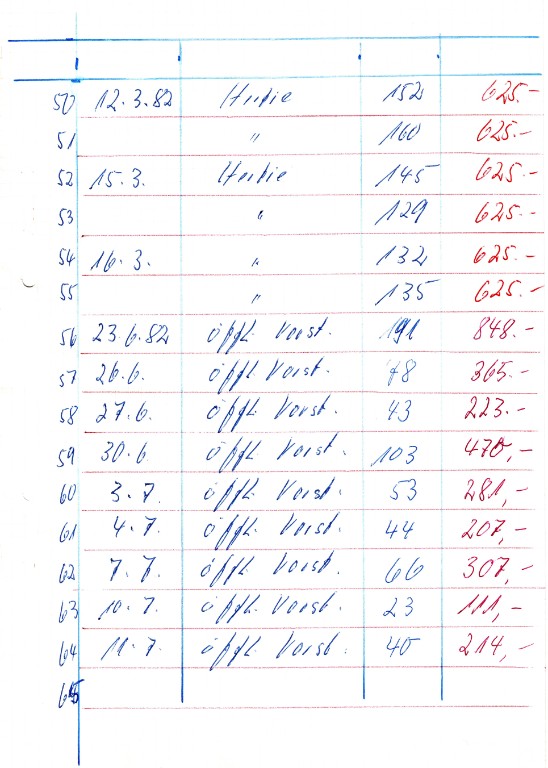 50 12.3.82 Hertie 152 625.-
51 " 160 625.-
52 15.3. Hertie 145 625.-
53 " 129 625.-
54 16.3. " 132 625.-
55 " 135 625.-
56 23.6.82 öffl. Vorst. 191 848.-
57 26.6. öffl. Vorst. 78 365.-
58 27.6. öffl. Vorst. 43 223.-
59 30.6 öffl. Vorst. 103 470,-
60 3.7. öffl. Vorst. 53 281,-
61 4.7. öffl. Vorst. 44 207,-
62 7.7. öffl. Vorst. 66 307,-
63 10.7. öffl. Vorst. 23 111,-
64 11.7. öffl. Vorst. 40 214,-
65